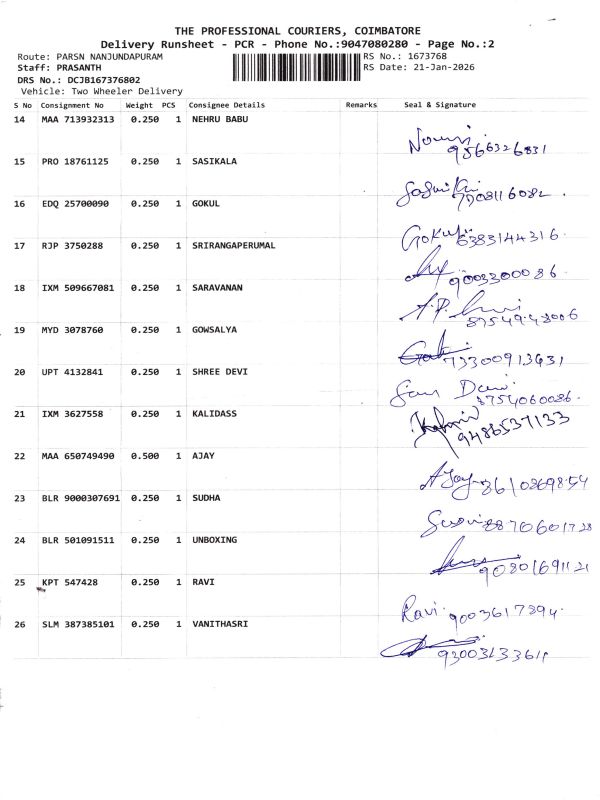 THE PROFESSIONAL COURIERS, COIMBATORE
Delivery Runsheet - PCR - Phone No.:9047080280 - Page No.:2
Route: PARSN NANJUNDAPURAM RS No.: 1673768
Staff: PRASANTH RS Date: 21-Jan-2026
DRS No.: DCJB167376802
Vehicle: Two Wheeler Delivery
S No Consignment No Weight PCS Consignee Details Remarks Seal & Signature
14 MAA 713932313 0.250 1 NEHRU BABU
9566326831
15 PRO 18761125 0.250 1 SASIKALA
7708116082.
16 EDQ 25700090 0.250 1 GOKUL
Gokul 6383144316.
17 RJP 3750288 0.250 1 SRIRANGAPERUMAL
9003300086.
18 IXM 509667081 0.250 1 SARAVANAN
8754948006
19 MYD 3078760 0.250 1 GOWSALYA
20 UPT 4132841 0.250 1 SHREE DEVI
8754060086.
21 IXM 3627558 0.250 1 KALIDASS
9486537133
22 MAA 650749490 0.500 1 AJAY
AJay 8610869854
23 BLR 9000307691 0.250 1 SUDHA
88706601728
24 BLR 501091511 0.250 1 UNBOXING
9080169121
25 KPT 547428 0.250 1 RAVI
Ravi. 9003617894.
26 SLM 387385101 0.250 1 VANITHASRI